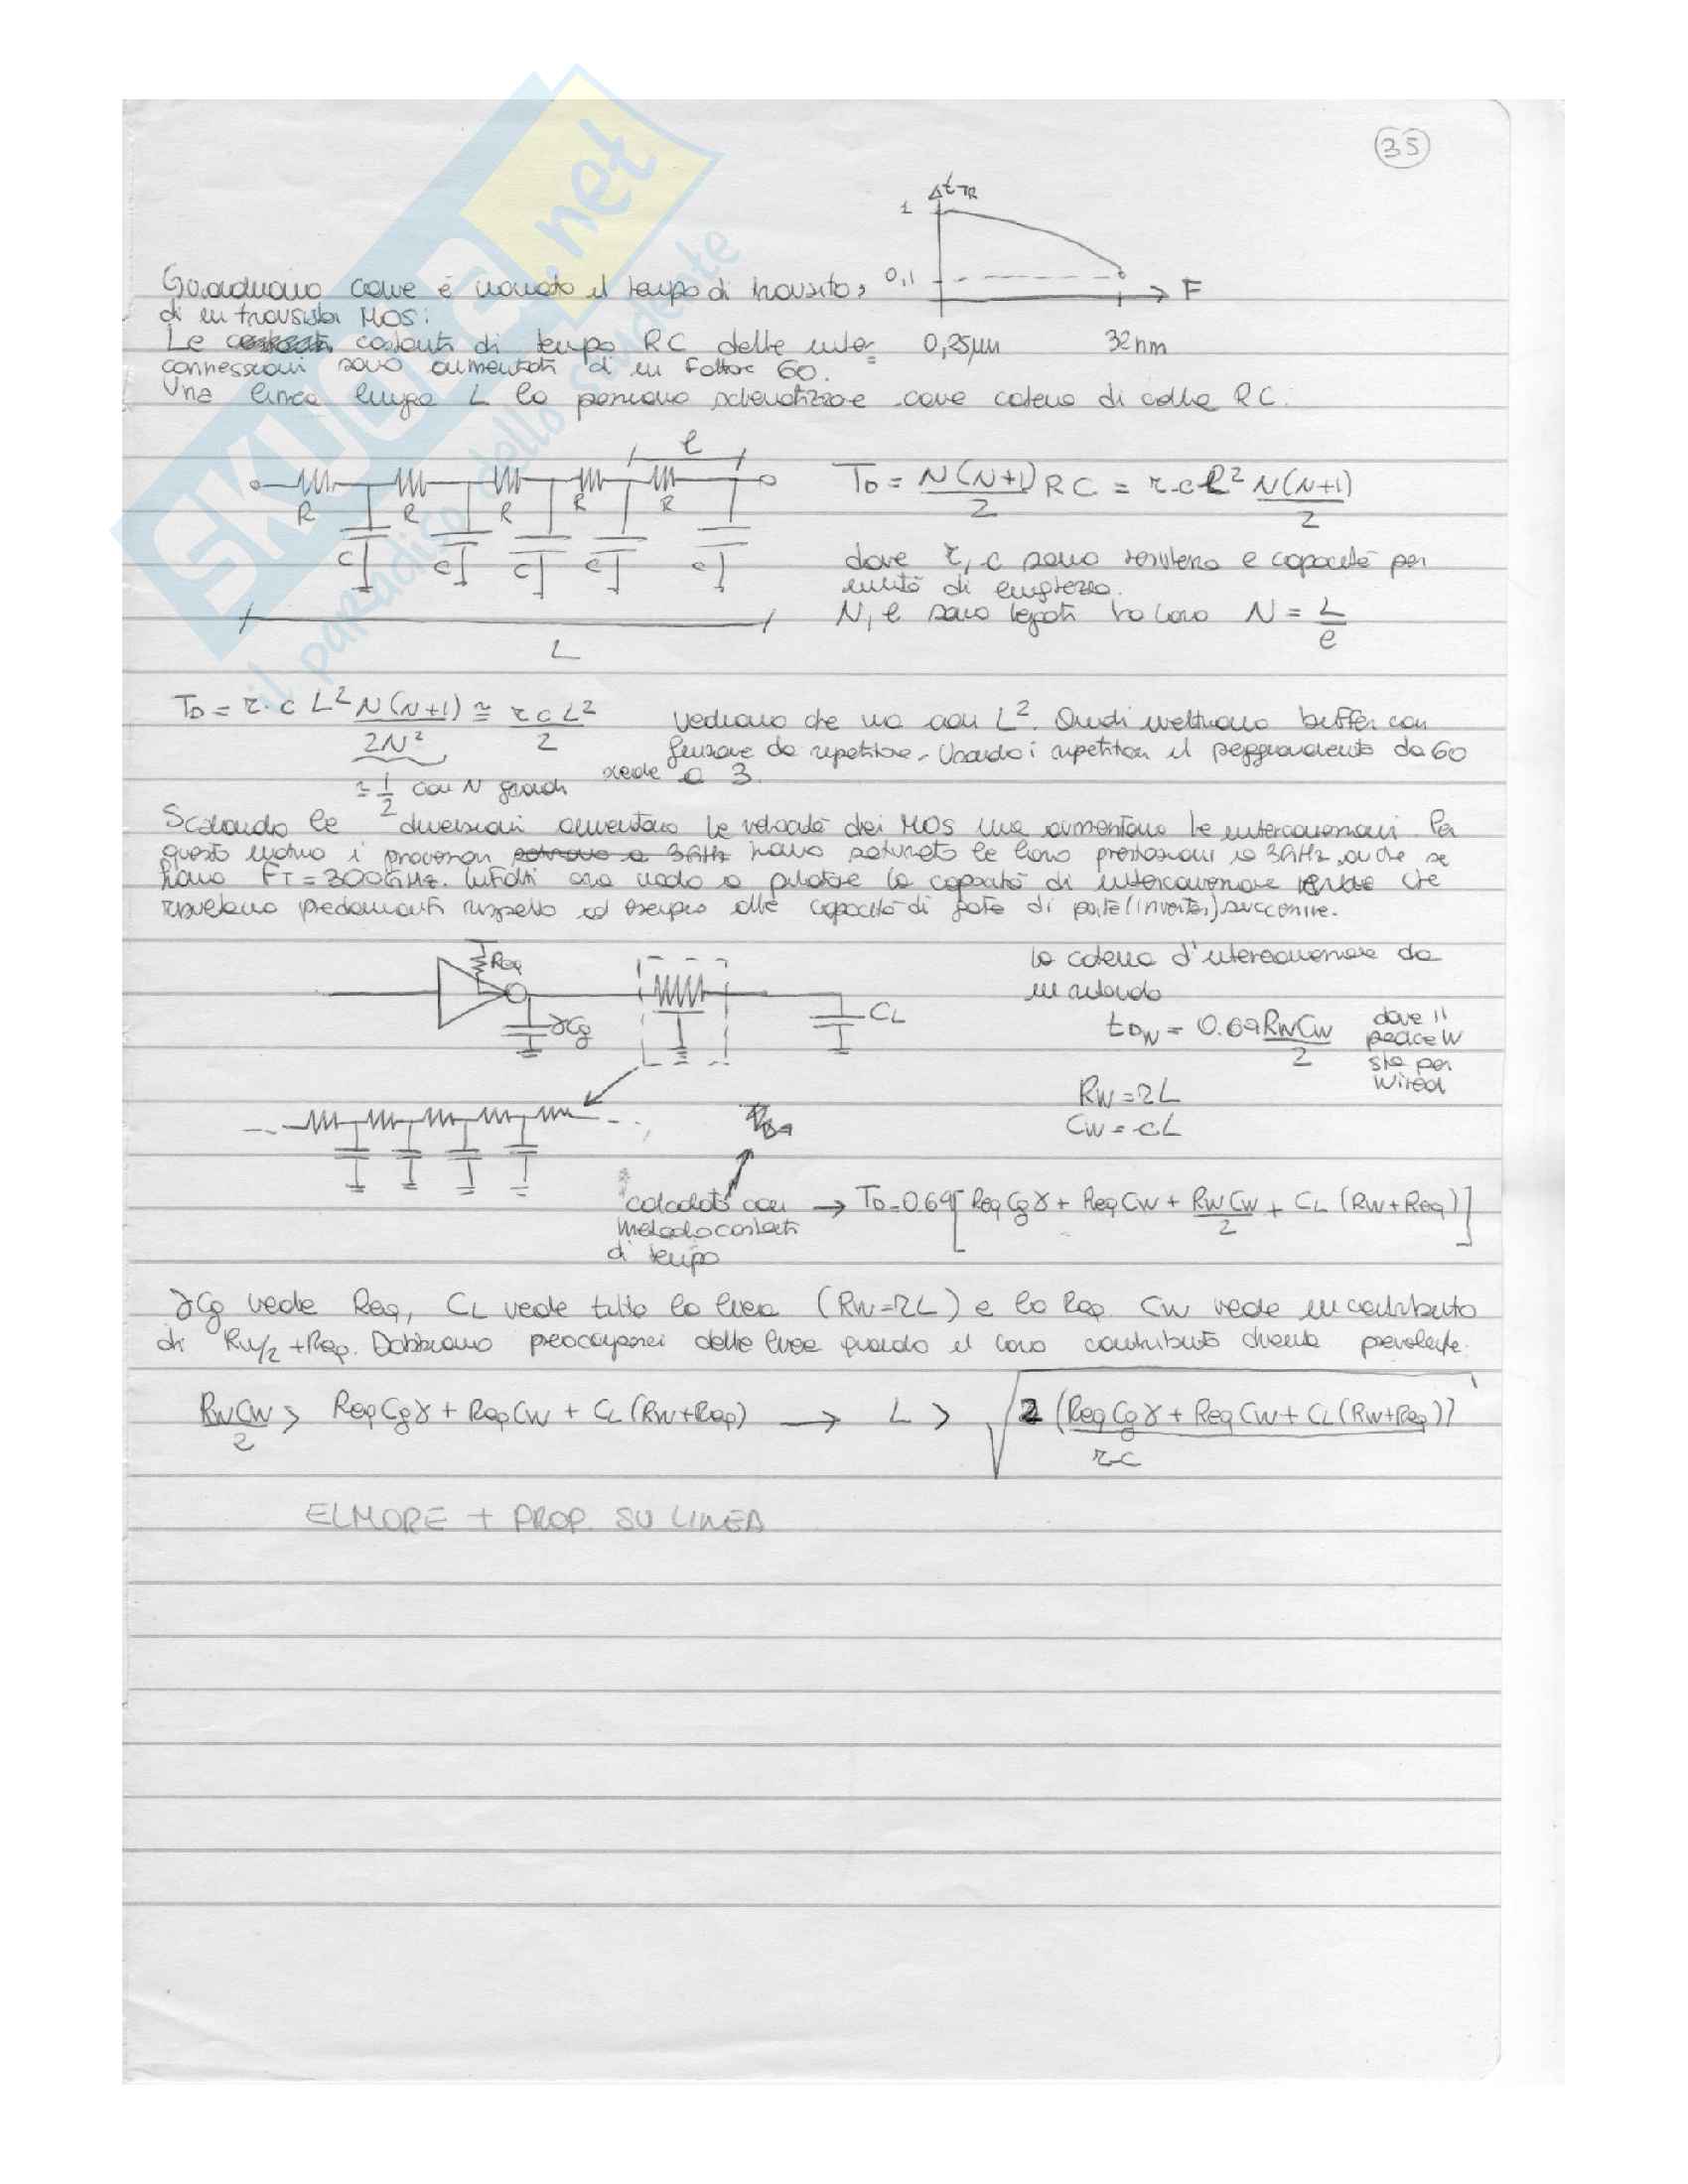 35
Δt TR
1
Guardiamo come è variato il tempo di transito,
0,1
F
di un transistor MOS:
Le costanti di tempo RC delle inter=
0,25μm
32nm
connessioni sono aumentati di un fattore 60.
Una linea lunga L la possiamo schematizzare come catena di celle RC.
l
R R R R R
C C C C C
L
TD = N(N+1)/2 RC = r·c l² N(N+1)/2
dove r, c sono resistenza e capacità per
unità di lunghezza.
N, l sono legati tra loro N = L/l
TD = r·c L² N(N+1)/2N² ≅ rcL²/2
≈ 1/2 con N grandi
Vediamo che va con L². Quindi mettiamo buffer con
funzione da repetitore. Usando i repetitori il peggioramento da 60
scede a 3.
Scalando le dimensioni aumentano le velocità dei MOS ma aumentano le interconnessioni. Per
questo motivo i processori potevano a 3GHz hanno saturato le loro prestazioni a 3GHz anche se
hanno FT = 300GHz. Infatti ora vado a pilotare la capacità di interconnessione che
risultano predominanti rispetto ad esempio alle capacità di gate di porte (inverter) successive.
Req
γCg
CL
la catena d'interconnessione da
un ritardo
tDW = 0.69 RwCw/2
dove il
pedice W
sta per
wired
Rw = rL
Cw = cL
calcolato con
metodo costanti
di tempo
→ TD = 0.69 [ReqCgγ + ReqCw + RwCw/2 + CL (Rw+Req)]
γCg vede Req, CL vede tutta la linea (Rw=rL) e la Req. Cw vede un contributo
di Rw/2 + Req. Dobbiamo preoccuparci delle linee quando il loro contributo diventa prevalente.
RwCw/2 > ReqCgγ + ReqCw + CL(Rw+Req) → L > √(2 (ReqCgγ + ReqCw + CL(Rw+Req))/r·c)
ELMORE + PROP. SU LINEA
SKUOLA.net
il paradiso dello studente